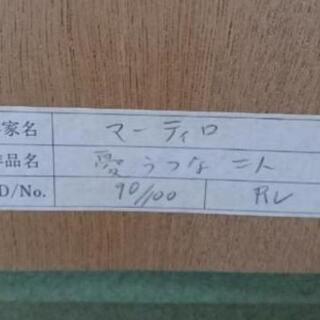 家名 マーティロ
品名 憂うつな二人
D/No. 90/100 RL